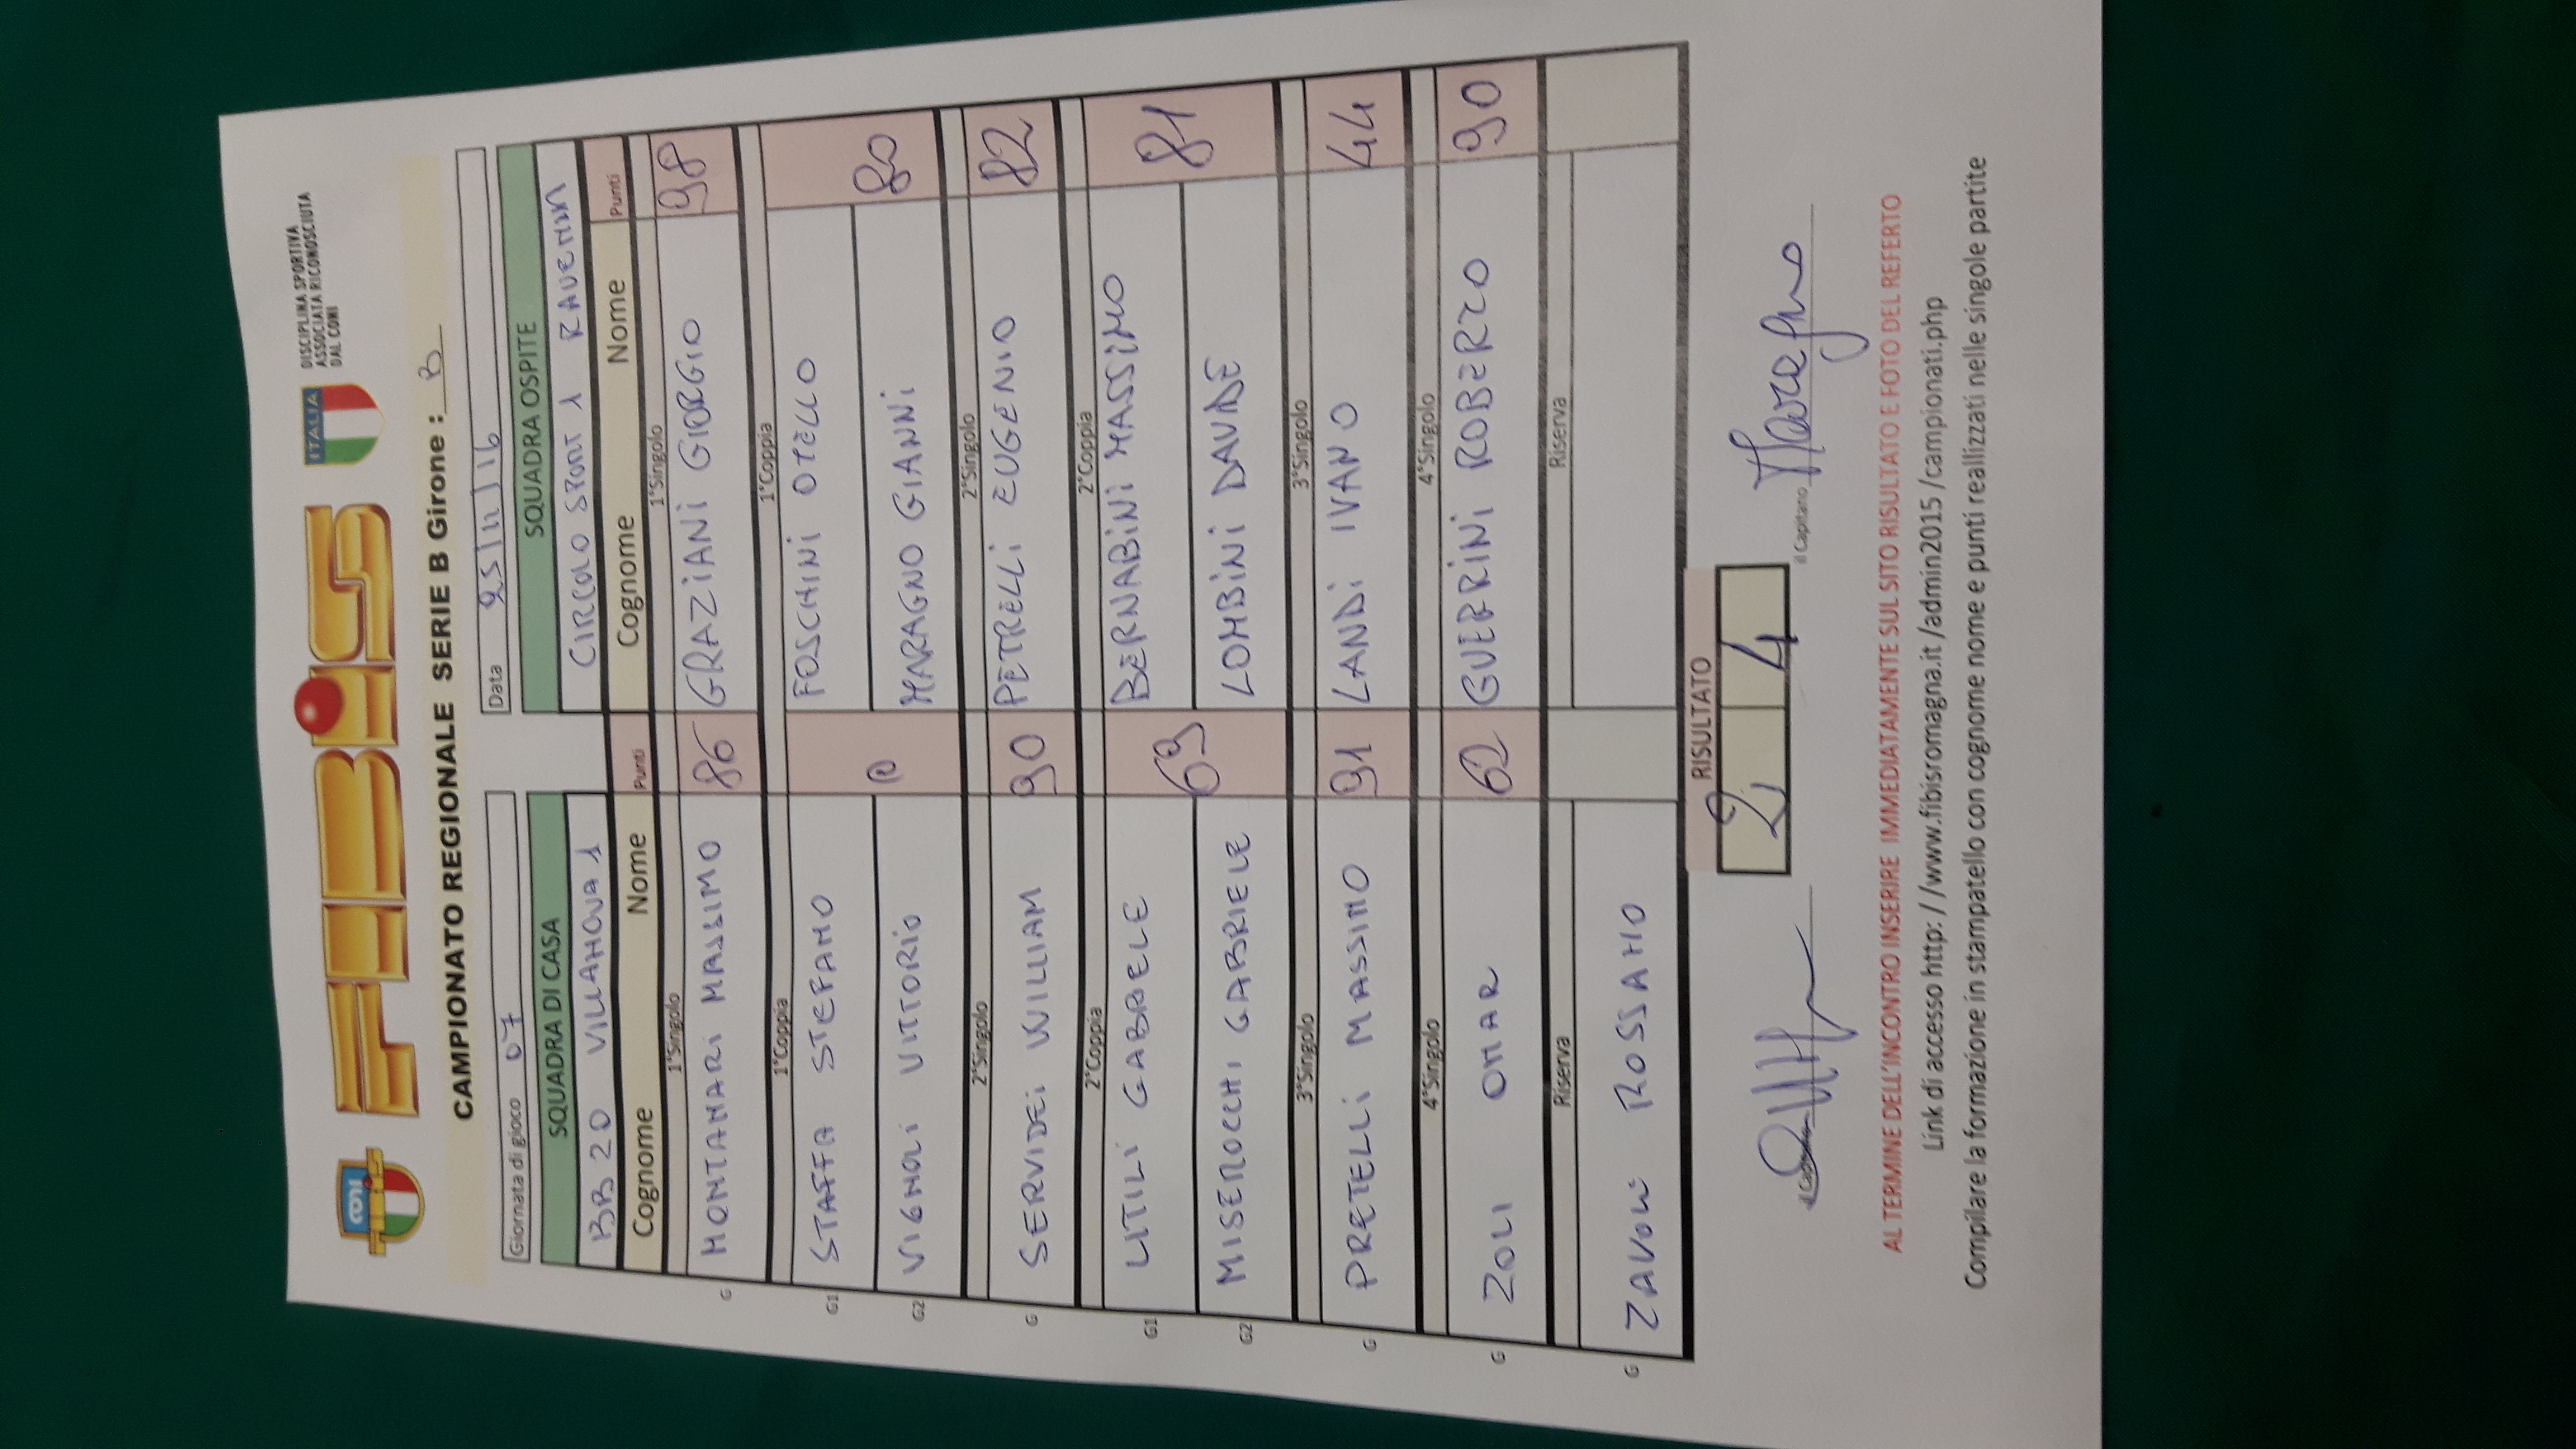 CONI
FIBiS
ITALIA
DISCIPLINA SPORTIVA
ASSOCIATA RICONOSCIUTA
DAL CONI
CAMPIONATO REGIONALE SERIE B Girone : B
Giornata di gioco 07 Data 25/11/16
SQUADRA DI CASA SQUADRA OSPITE
BB 20 VILLANOVA 1 CIRCOLO SPORT 1 RAVENNA
Cognome Nome Punti Cognome Nome Punti
1°Singolo 1°Singolo
G MONTANARI MASSIMO 86 GRAZIANI GIORGIO 98
1°Coppia 1°Coppia
G1 STAFFA STEFANO FOSCHINI OTELLO
80
G2 VIGNOLI VITTORIO MARAGNO GIANNI
2°Singolo 2°Singolo
G SERVIDEI WILLIAM 90 PETRELLI EUGENIO 82
2°Coppia 2°Coppia
G1 UTILI GABRIELE BERNABINI MASSIMO
69 81
G2 MISEROCCHI GABRIELE LOMBINI DAVIDE
3°Singolo 3°Singolo
G PRETELLI MASSIMO 91 LANDI IVANO 44
4°Singolo 4°Singolo
G ZOLI OMAR 62 GUERRINI ROBERTO 90
Riserva Riserva
G ZAVOLI ROSSANO
RISULTATO
2 4
il Capitano il Capitano Maragno
AL TERMINE DELL'INCONTRO INSERIRE IMMEDIATAMENTE SUL SITO RISULTATO E FOTO DEL REFERTO
Link di accesso http: / /www.fibisromagna.it /admin2015 /campionati.php
Compilare la formazione in stampatello con cognome nome e punti reallizzati nelle singole partite